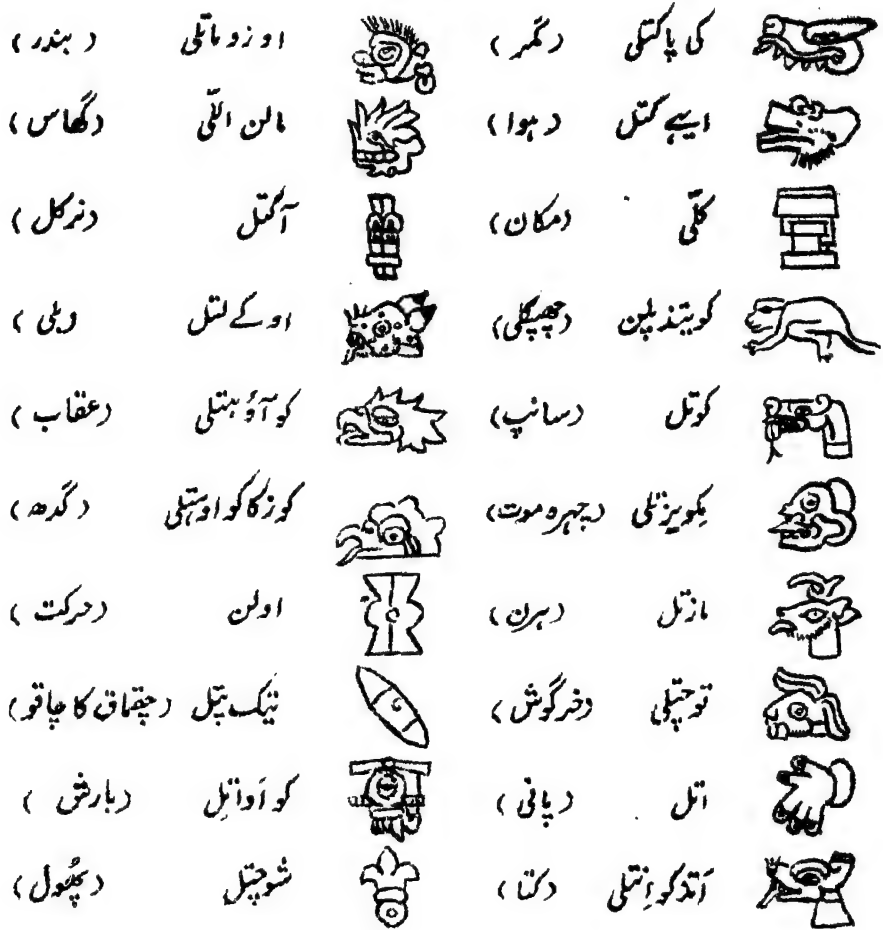 کی پاکتلی (مگر)
ایہے کتل (ہوا)
کلّی (مکان)
کویتذپلن (چھپکلی)
کوتل (سانپ)
مکویزتلی (چہرہ موت)
مازتل (ہرن)
توچتلی (خرگوش)
اتل (پانی)
اَتذکواِنتلی (کتا)
اوزوماتلی (بندر)
مالن اللّی (گھاس)
آکتل (نرکل)
اوکے لتل (بلی)
کوآؤہتلی (عقاب)
کوزکاکواوہتلی (گدھ)
اولن (حرکت)
تیک پتل (چقماق کا چاقو)
کواَواتِل (بارش)
شوچتل (پھُول)